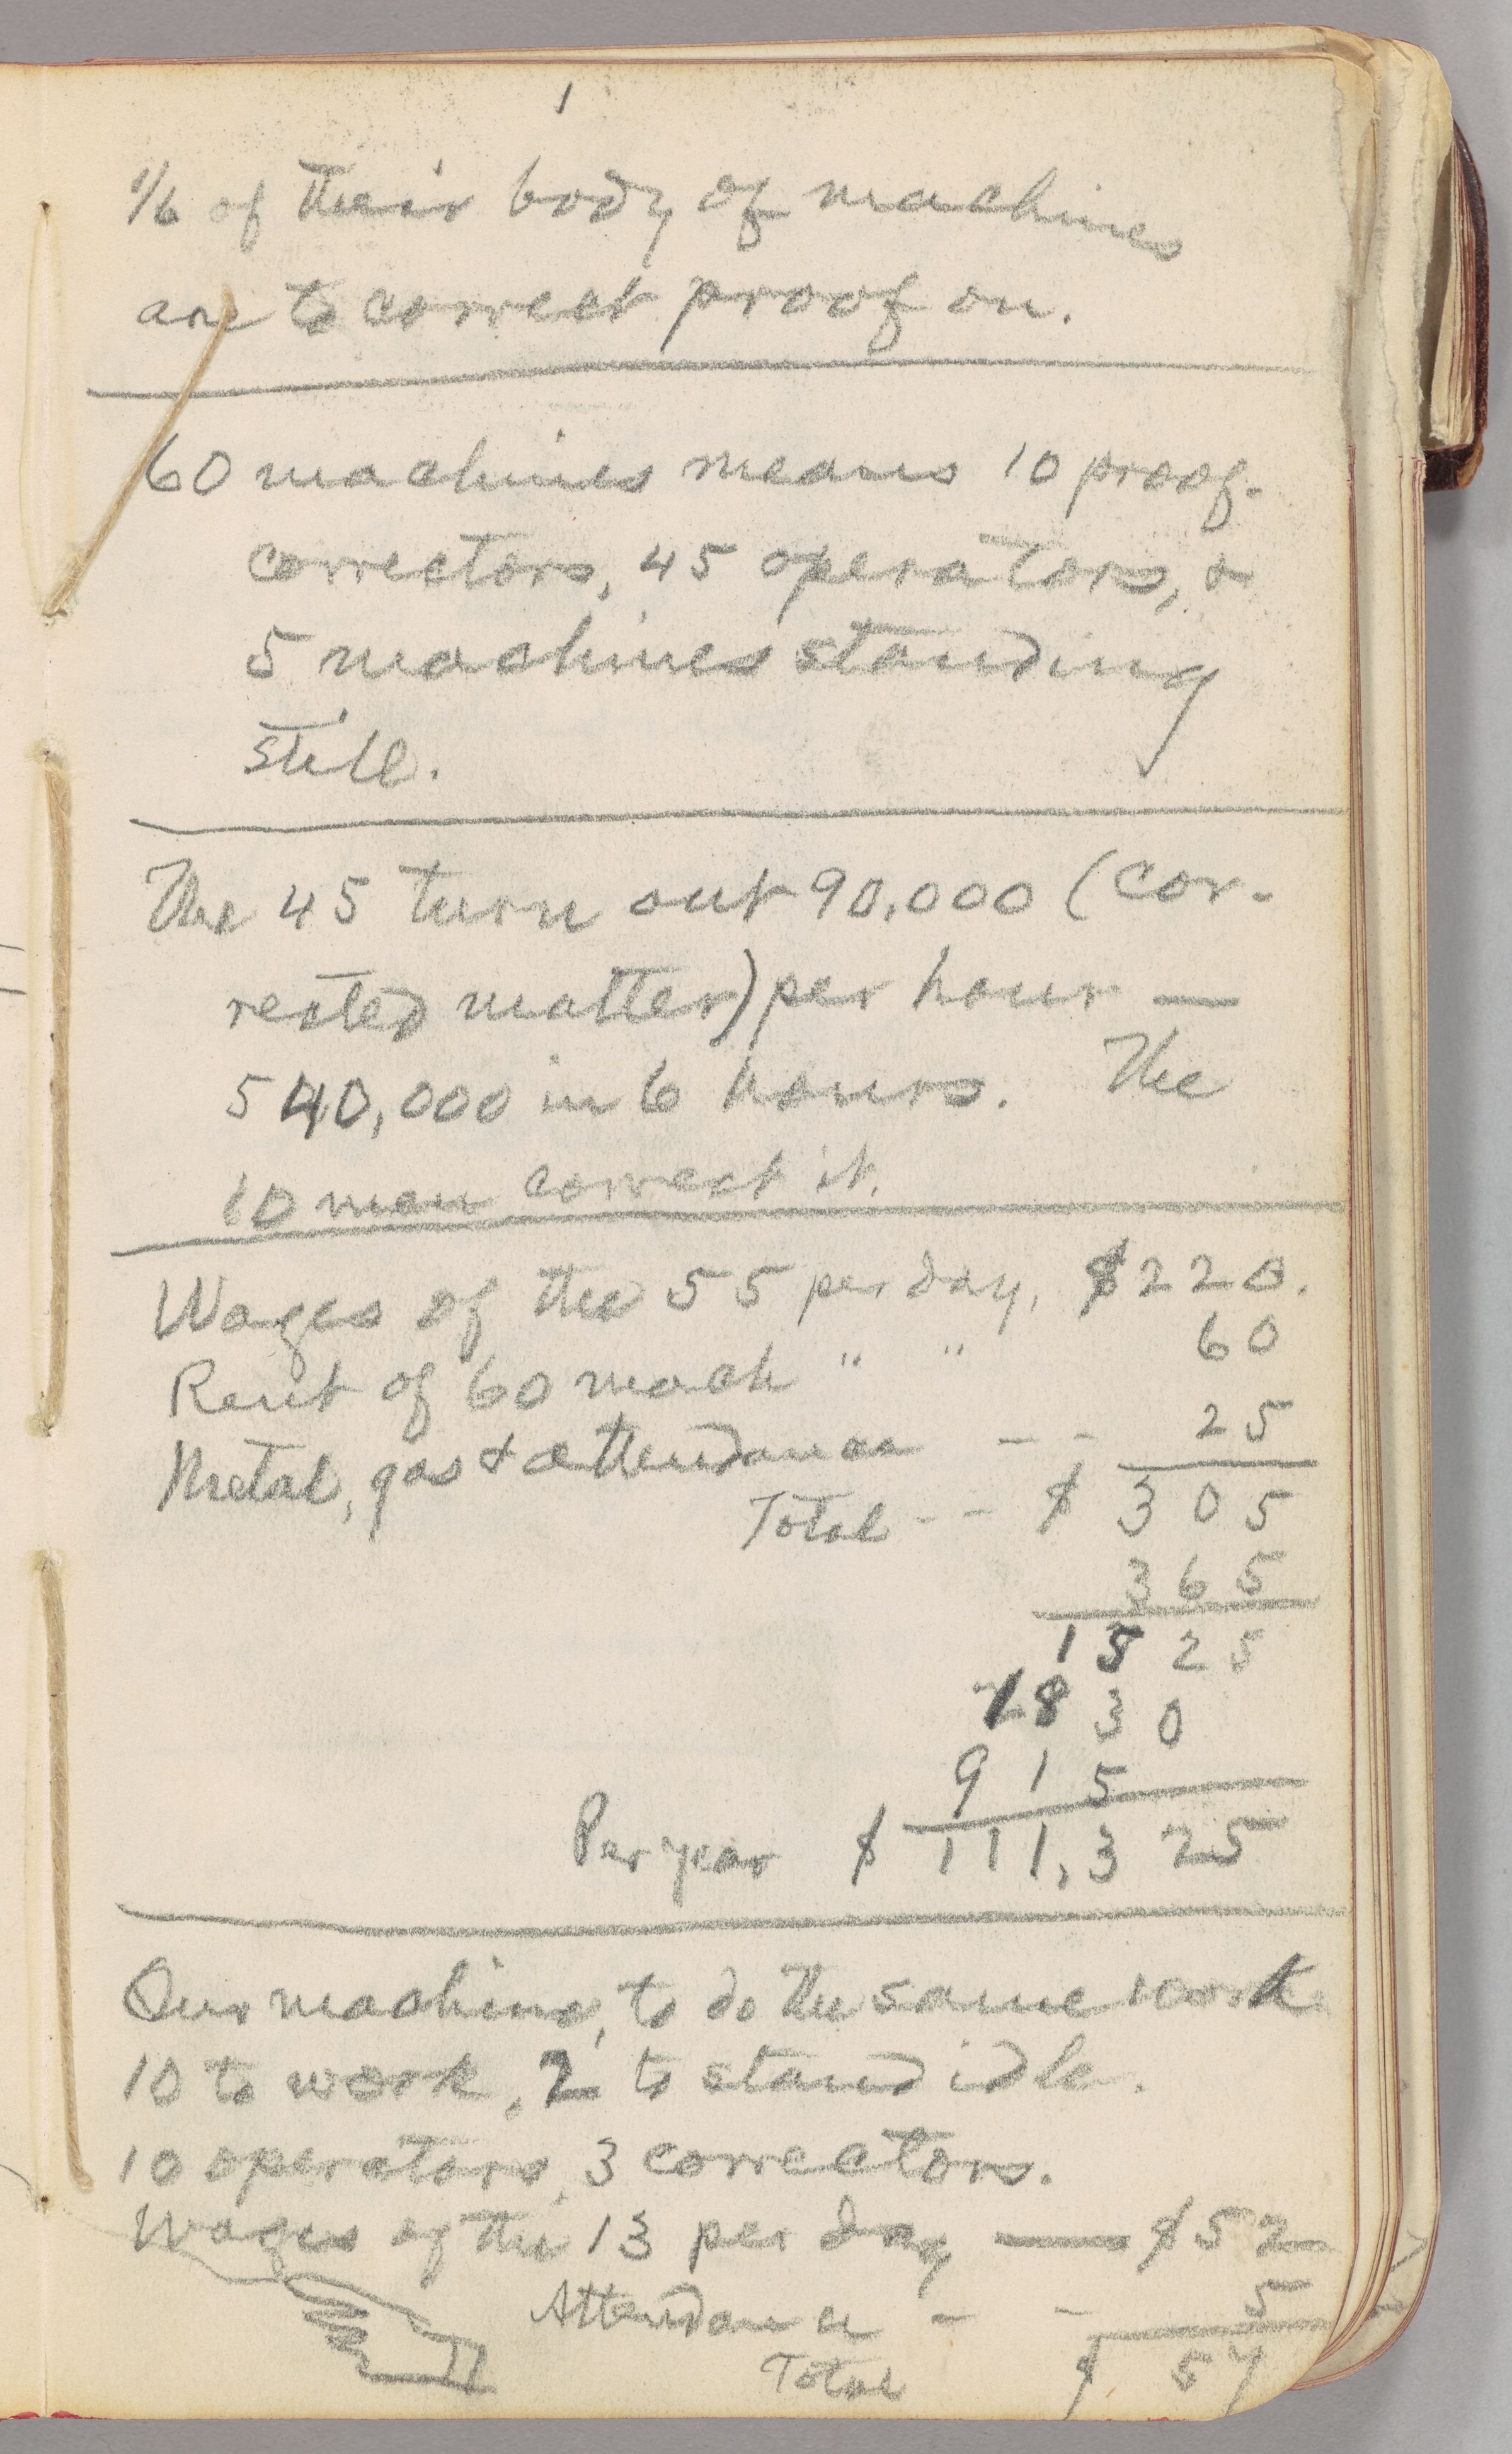 1
1/6 of their body of machines
are to correct proof on.
60 machines means 10 proof-
correctors, 45 operators, &
5 machines standing
still.
The 45 turn out 90,000 (cor-
rected matter) per hour —
540,000 in 6 hours. The
10 men correct it.
Wages of the 55 per day, $220.
Rent of 60 mach " " 60
Metal, gas & attendance -- 25
Total -- $305
365
1525
1830
915
Per year $111,325
Our machine, to do the same work
10 to work, 2 to stand idle.
10 operators, 3 correctors.
Wages of the 13 per day — $52
Attendance - - 5
Total $57